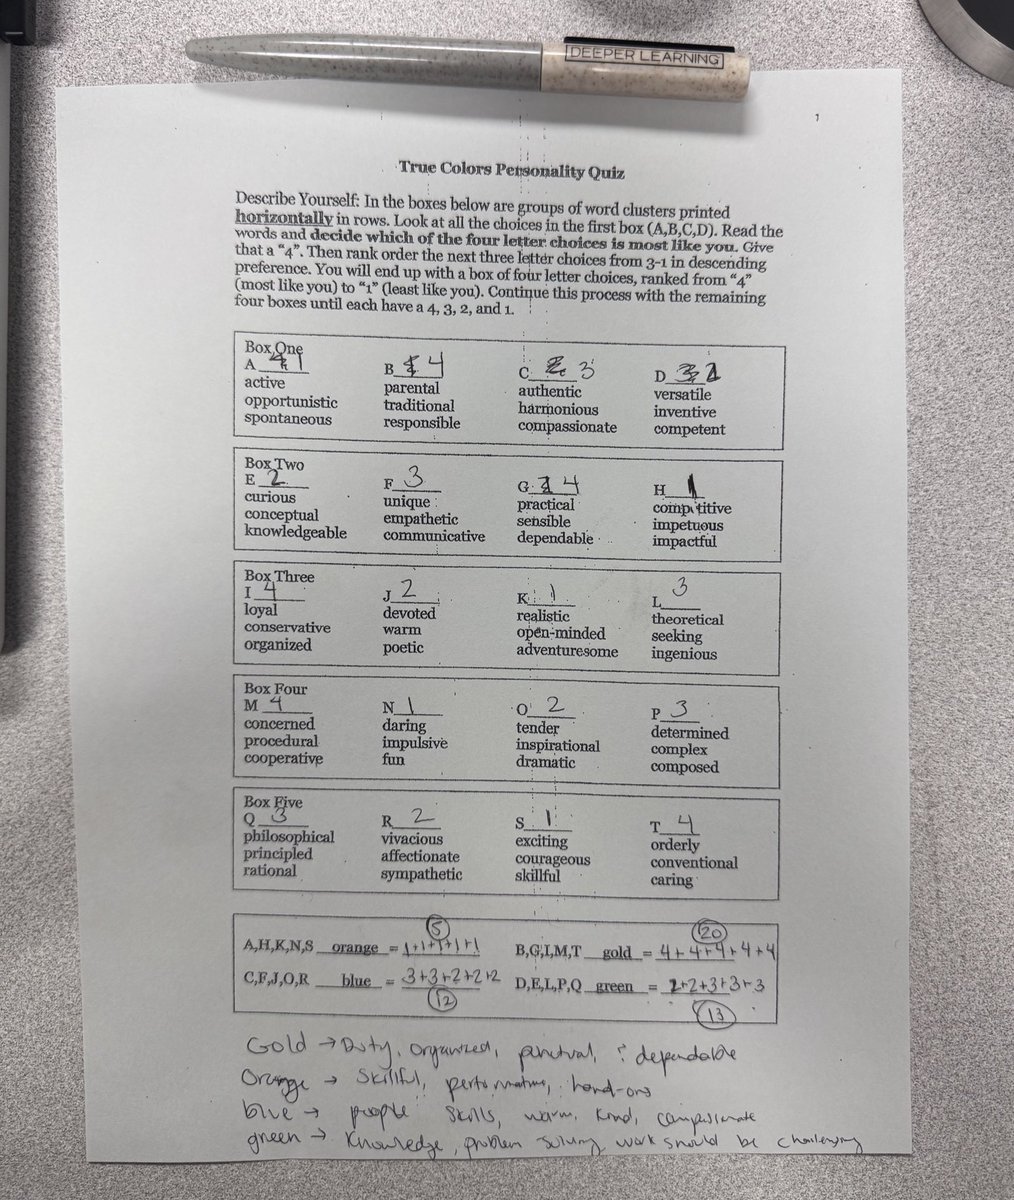 DEEPER LEARNING
1
True Colors Personality Quiz
Describe Yourself: In the boxes below are groups of word clusters printed
horizontally in rows. Look at all the choices in the first box (A,B,C,D). Read the
words and decide which of the four letter choices is most like you. Give
that a “4”. Then rank order the next three letter choices from 3-1 in descending
preference. You will end up with a box of four letter choices, ranked from “4”
(most like you) to “1” (least like you). Continue this process with the remaining
four boxes until each have a 4, 3, 2, and 1.
Box One
A 1 B 4 C 3 D 2
active parental authentic versatile
opportunistic traditional harmonious inventive
spontaneous responsible compassionate competent
Box Two
E 2 F 3 G 4 H 1
curious unique practical competitive
conceptual empathetic sensible impetuous
knowledgeable communicative dependable impactful
Box Three
I 4 J 2 K 1 L 3
loyal devoted realistic theoretical
conservative warm open-minded seeking
organized poetic adventuresome ingenious
Box Four
M 4 N 1 O 2 P 3
concerned daring tender determined
procedural impulsive inspirational complex
cooperative fun dramatic composed
Box Five
Q 3 R 2 S 1 T 4
philosophical vivacious exciting orderly
principled affectionate courageous conventional
rational sympathetic skillful caring
5 20
A,H,K,N,S orange = 1+1+1+1+1 B,G,I,M,T gold = 4+4+4+4+4
C,F,J,O,R blue = 3+3+2+2+2 D,E,L,P,Q green = 2+2+3+3+3
12 13
Gold → Duty, organized, punctual, dependable
Orange → Skillful, hand-ons
blue → people skills, warm, kind, compassionate
green → Knowledge, problem solving work should be challenging